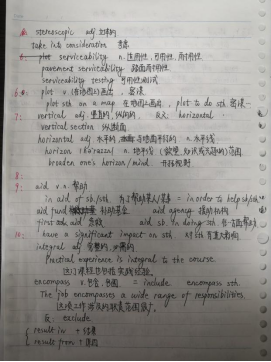 stereoscopic adj 立体的
take into consideration 考虑
6. serviceability n. 适用性, 可用性, 耐用性
pavement serviceability 路面耐用性
serviceability testing 可用性测试
6. plot v. 密谋
plot sth on a map 在地图上画出, plot to do sth 密谋…
7: vertical adj. 垂直的, 纵向的, 反: horizontal
vertical section 纵剖面
horizontal adj 水平的, n. 水平线
horizon n. 地平线 (欲望 知识或兴趣的) 范围
broaden one's horizon/mind 开拓视野
8:
9: aid v n. 帮助
in aid of sb/sth 为了帮助某人/某 = in order to help sb/sth
aid fund 补助基金 aid agency 援助机构
first aid 急救 aid sb in doing sth 在…方面帮助
14: have a significant impact on sth. 对sth 有重大影响
integral adj 完整的, 必需的
Practical experience is integral to the course.
这门课程包括实践经验.
encompass v. 包含, 包围 = include encompass sth.
The job encompasses a wide range of responsibilities.
这项工作涉及的职责范围很广.
反: exclude
result in + 结果
result from + 原因